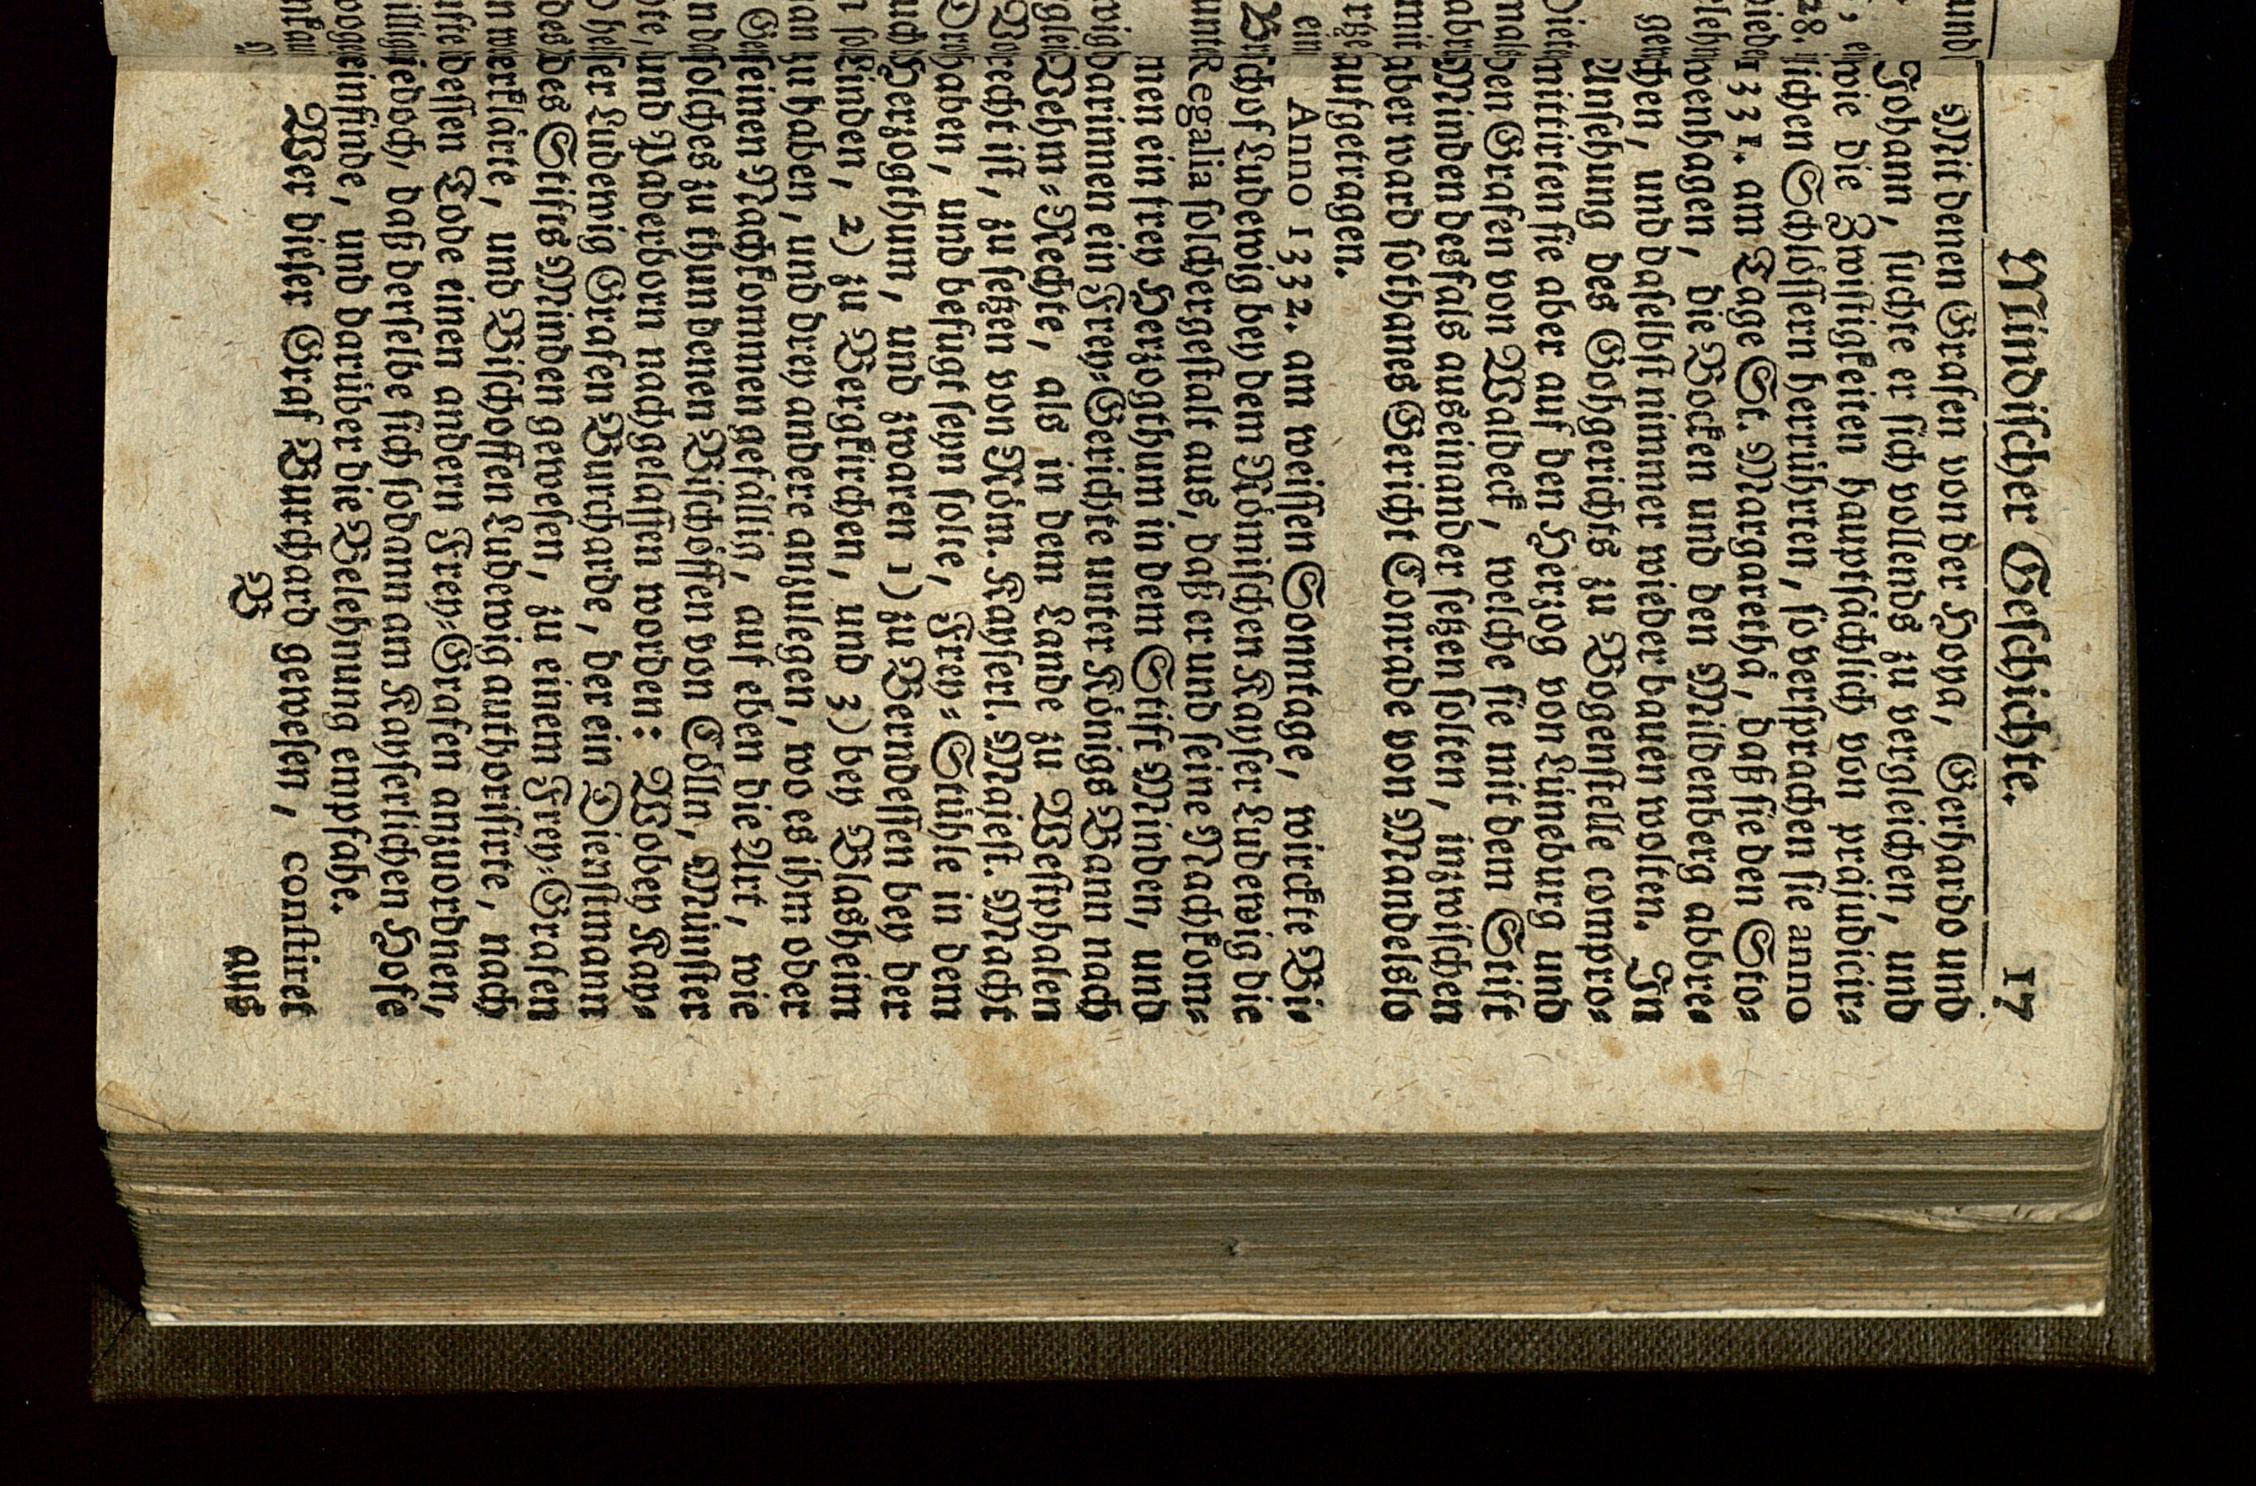 Mindischer Geschichte. 17
Mit denen Grafen von der Hoya, Gerhardo und
Johann, suchte er sich vollends zu vergleichen, und
wie die Zwistigkeiten hauptsächlich von präjudicir-
lichen Schlössern herrührten, so versprachen sie anno
1331. am Tage St. Margarethä, daß sie den Sto-
wenhagen, die Bocken und den Mildenberg abbre-
chen, und daselbst nimmer wieder bauen wolten. In
Ansehung des Gohgerichts zu Bogenstelle compro-
mittirten sie aber auf den Herzog von Lüneburg und
den Grafen von Waldeck, welche sie mit dem Stift
Minden desfals auseinander setzen solten, inzwischen
aber ward sothanes Gericht Conrade von Mandelslo
aufgetragen.
Anno 1332. am weissen Sonntage, wirckte Bi-
schof Ludewig bey dem Römischen Kayser Ludewig die
Regalia solchergestalt aus, daß er und seine Nachkom-
men ein frey Herzogthum in dem Stift Minden, und
darinnen ein Frey-Gerichte unter Königs Bann nach
Vehm-Rechte, als in dem Lande zu Westphalen
Recht ist, zu setzen von Röm. Kayserl. Majest. Macht
haben, und befugt seyn solte, Frey-Stühle in dem
Herzogthum, und zwaren 1) zu Berndessen bey der
Linden, 2) zu Bergkirchen, und 3) bey Blasheim
zu haben, und drey andere anzulegen, wo es ihm oder
seinen Nachkommen gefällig, auf eben die Art, wie
solches zu thun denen Bischöffen von Cölln, Münster
und Paderborn nachgelassen worden: Wobey Kay-
ser Ludewig Grafen Burcharde, der ein Dienstmann
des Stifts Minden gewesen, zu einem Frey-Grafen
erklärte, und Bischoffen Ludewig authorisirte, nach
dessen Tode einen andern Frey-Grafen anzuordnen,
jedoch, daß derselbe sich sodann am Kayserlichen Hofe
einfinde, und darüber die Belehnung empfahe.
Wer dieser Graf Burchard gewesen, constiret
B aus